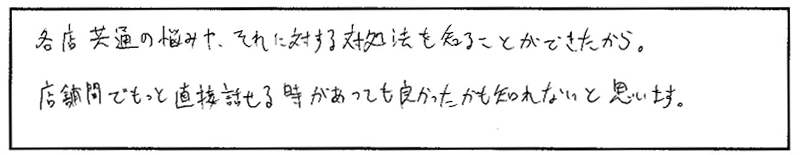 各店共通の悩みや、それに対する対処法も知ることができたから。
店舗間でもっと直接話せる時があっても良かったかも知れないと思います。